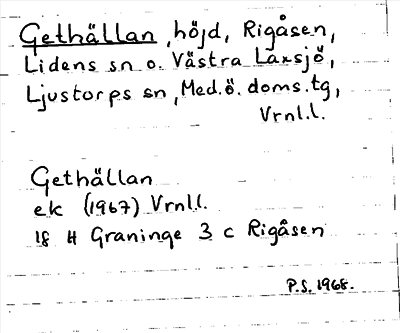 Gethällan, höjd, Rigåsen,
Lidens sn o. Västra Laxsjö,
Ljustorps sn, Med.ö. doms.tg,
Vrnl.l.
Gethällan
ek (1967) Vrnl.l.
18 H Graninge 3 c Rigåsen
P.S. 1968.